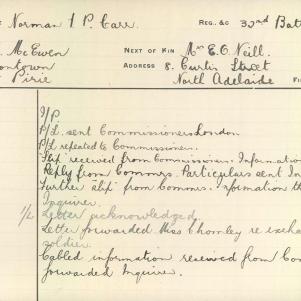 Norman I P Carr. REG. & C 32nd Batt
McEwen NEXT OF KIN Mrs E. O. Neill.
ontown ADDRESS 8. Curtis Street
Pirie North Adelaide FI
I/P
P/L sent Commissioners London
P/L repeated to Commissioner.
Slip received from Commissioners. Informatio
Reply from Commrs. Particulars sent In
Further slip from Commrs. nformation th
Inquirer.
1/L Letter acknowledged
Letter forwarded Miss Chomley re excha
soldier.
Cabled information received from Com
forwarded Inquirer.